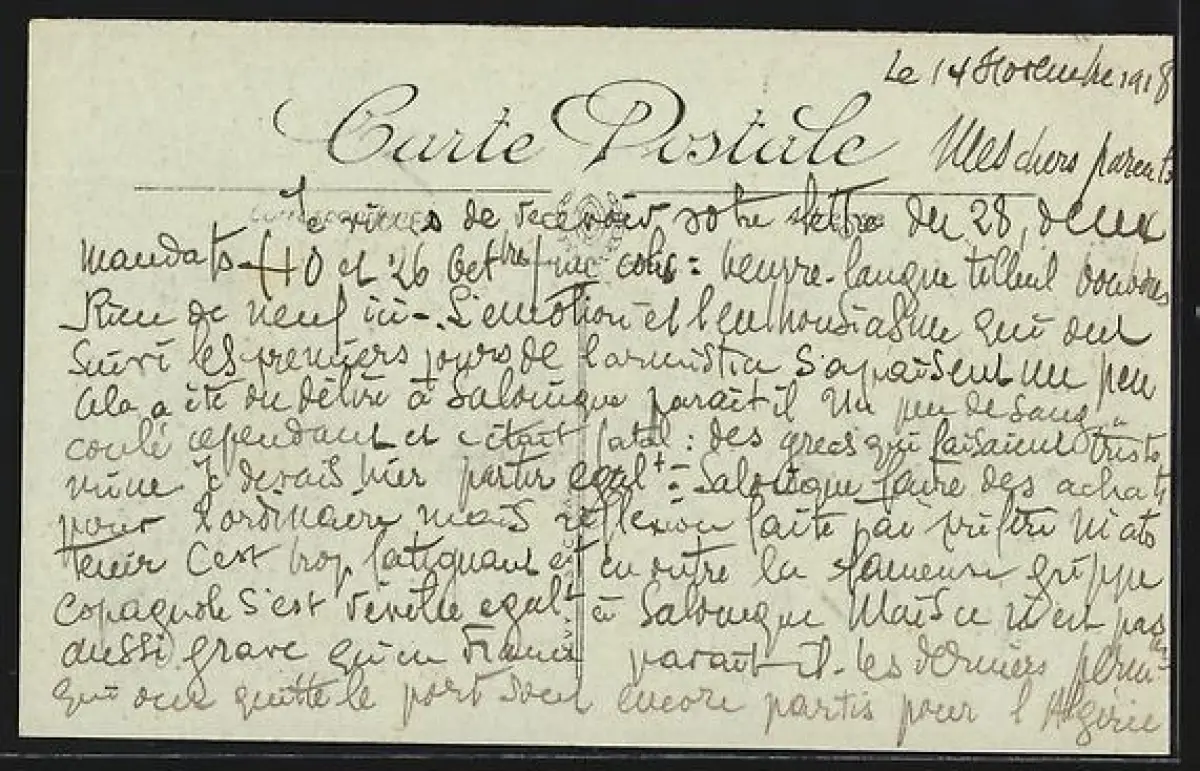 Le 14 Novembre 1918
Carte Postale
Mes chers parents
Je viens de recevoir votre lettre du 28, deux
mandats 40 et 26 8bre un colis : beurre-langue tilleul bonbons
Rien de neuf ici -. L'emotion et l'enthousiasme qui ont
suivi les premiers jours de l'armistice s'apaisent un peu
Cela a été du délire à Salonique parait il Un peu de sang a
coulé cependant et c'était fatal : des grecs qui faisaient triste
mine. Je devais hier partir egalt = Salonique faire des achats
pour l'ordinaire mais réflexion faite j'ai préféré m'abs
tenir C'est trop fatiguant et en outre la fameuse grippe
espagnole s'est révélée egalt à Salonique Mais ce n'est pas
aussi grave qu'en France parait-il. les derniers permis-
qui ont quitté le port sont encore partis pour l'Algérie